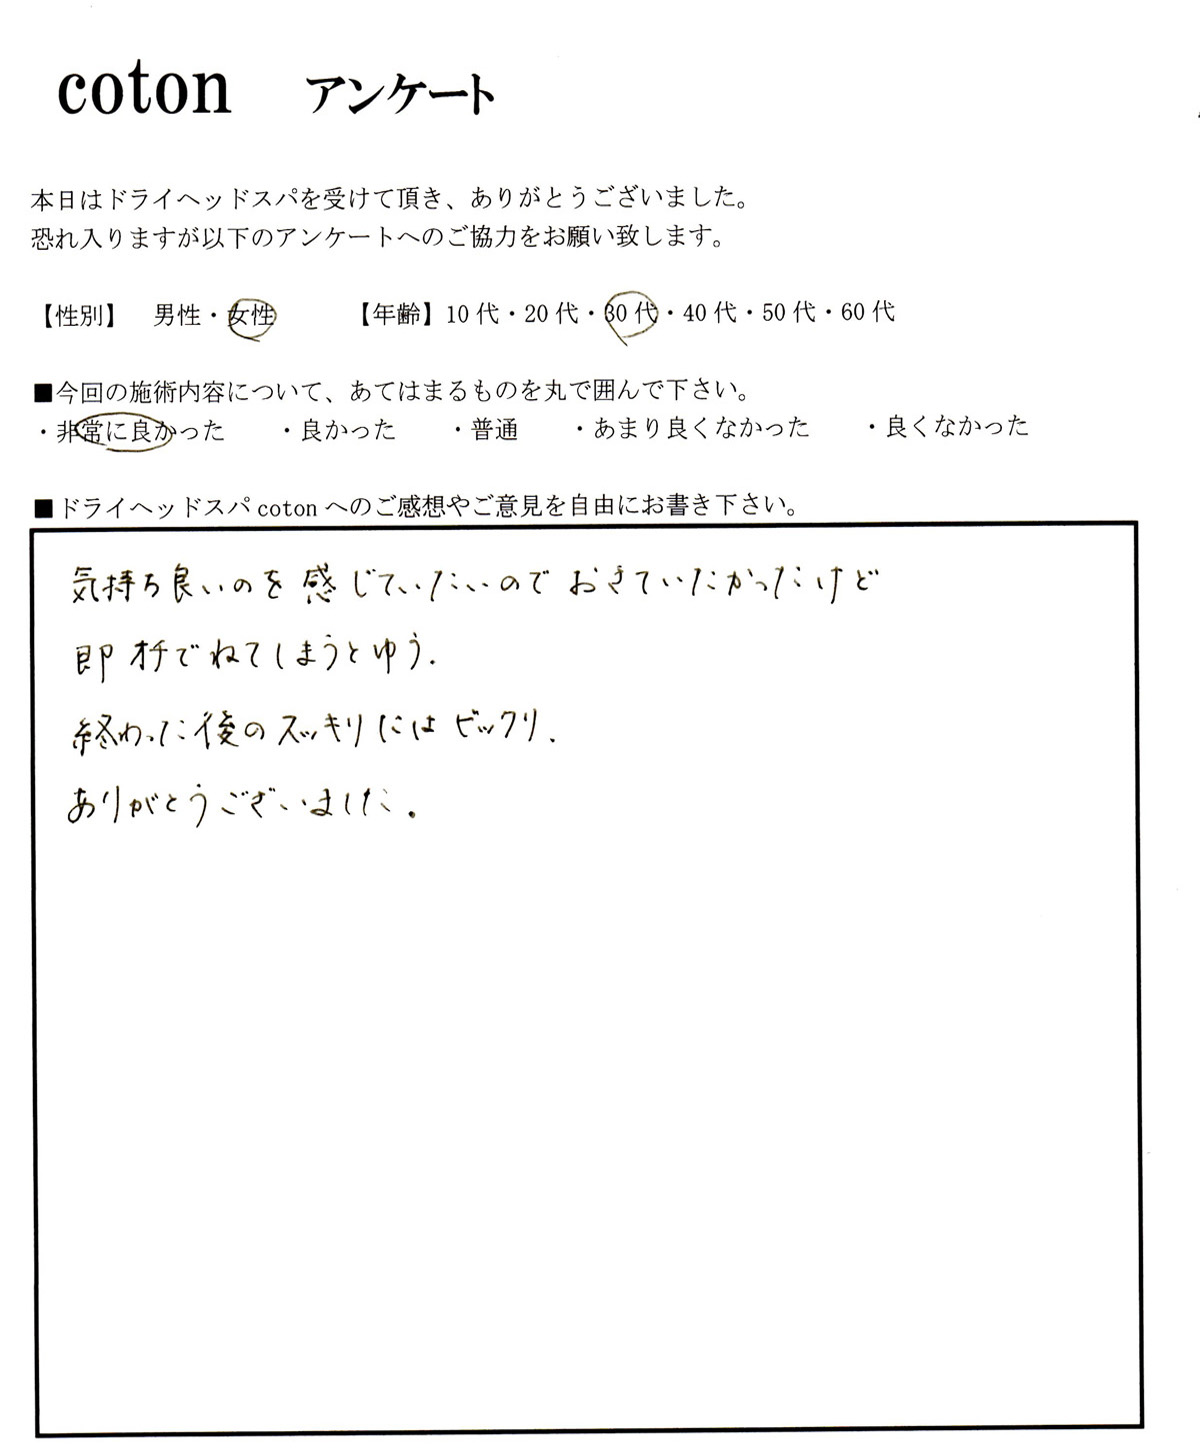 coton アンケート
本日はドライヘッドスパを受けて頂き、ありがとうございました。
恐れ入りますが以下のアンケートへのご協力をお願い致します。
【性別】 男性・女性 【年齢】10代・20代・30代・40代・50代・60代
■今回の施術内容について、あてはまるものを丸で囲んで下さい。
・非常に良かった ・良かった ・普通 ・あまり良くなかった ・良くなかった
■ドライヘッドスパcotonへのご感想やご意見を自由にお書き下さい。
気持ち良いのを感じていたいのでおきていたかったけど
即オチでねてしまうとゆう.
終わった後のスッキリにはビックリ.
ありがとうございました。